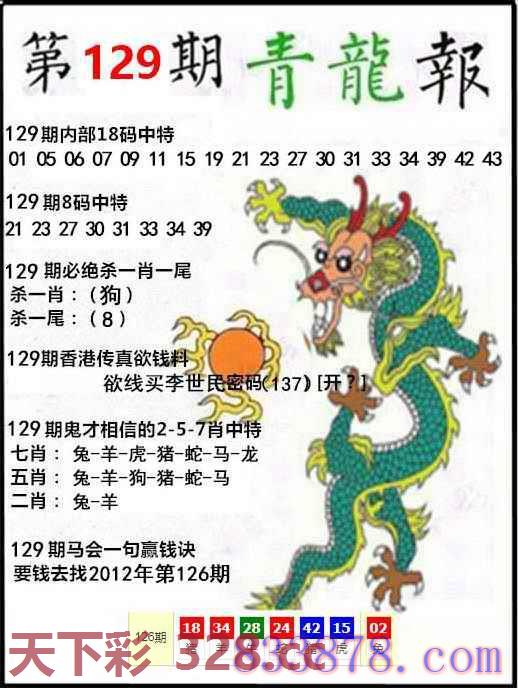 第129期 青龍報
129期内部18码中特
01 05 06 07 09 11 15 19 21 23 27 30 31 33 34 39 42 43
129期8码中特
21 23 27 30 31 33 34 39
129期必绝杀一肖一尾
杀一肖：（狗）
杀一尾：（8）
129期香港传真欲钱料
欲线买李世民密码(137)[开?]
129期鬼才相信的2-5-7肖中特
七肖：兔-羊-虎-猪-蛇-马-龙
五肖：兔-羊-狗-猪-蛇-马
二肖：兔-羊
129期马会一句赢钱诀
要钱去找2012年第126期
126期 18 34 28 24 42 15 02
猪 羊 牛 蛇 猪 虎 兔
天下彩 328.cc
833878.com